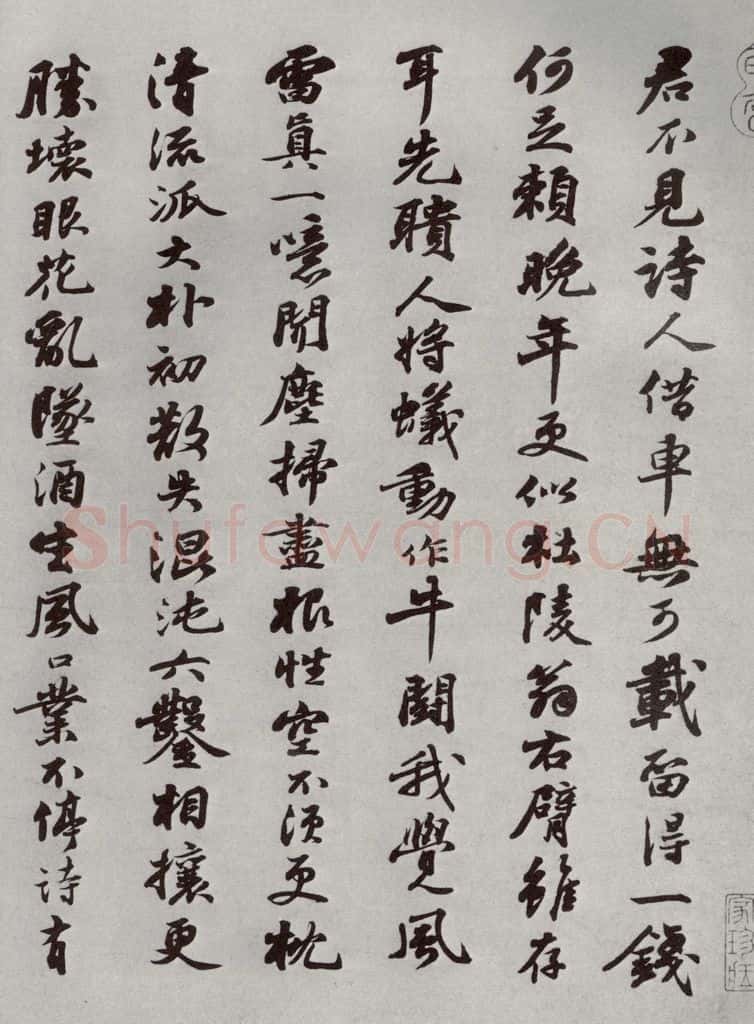 君不見詩人借車無可載留得一錢
何足賴晚年更似杜陵翁右臂雖存
耳先聵人將蟻動作牛鬭我覺風
雷真一噫聞塵掃盡根性空不須更枕
清流派大朴初散失混沌六鑿相攘更
勝壞眼花亂墜酒生風口業不停詩有
Shufawang.CN